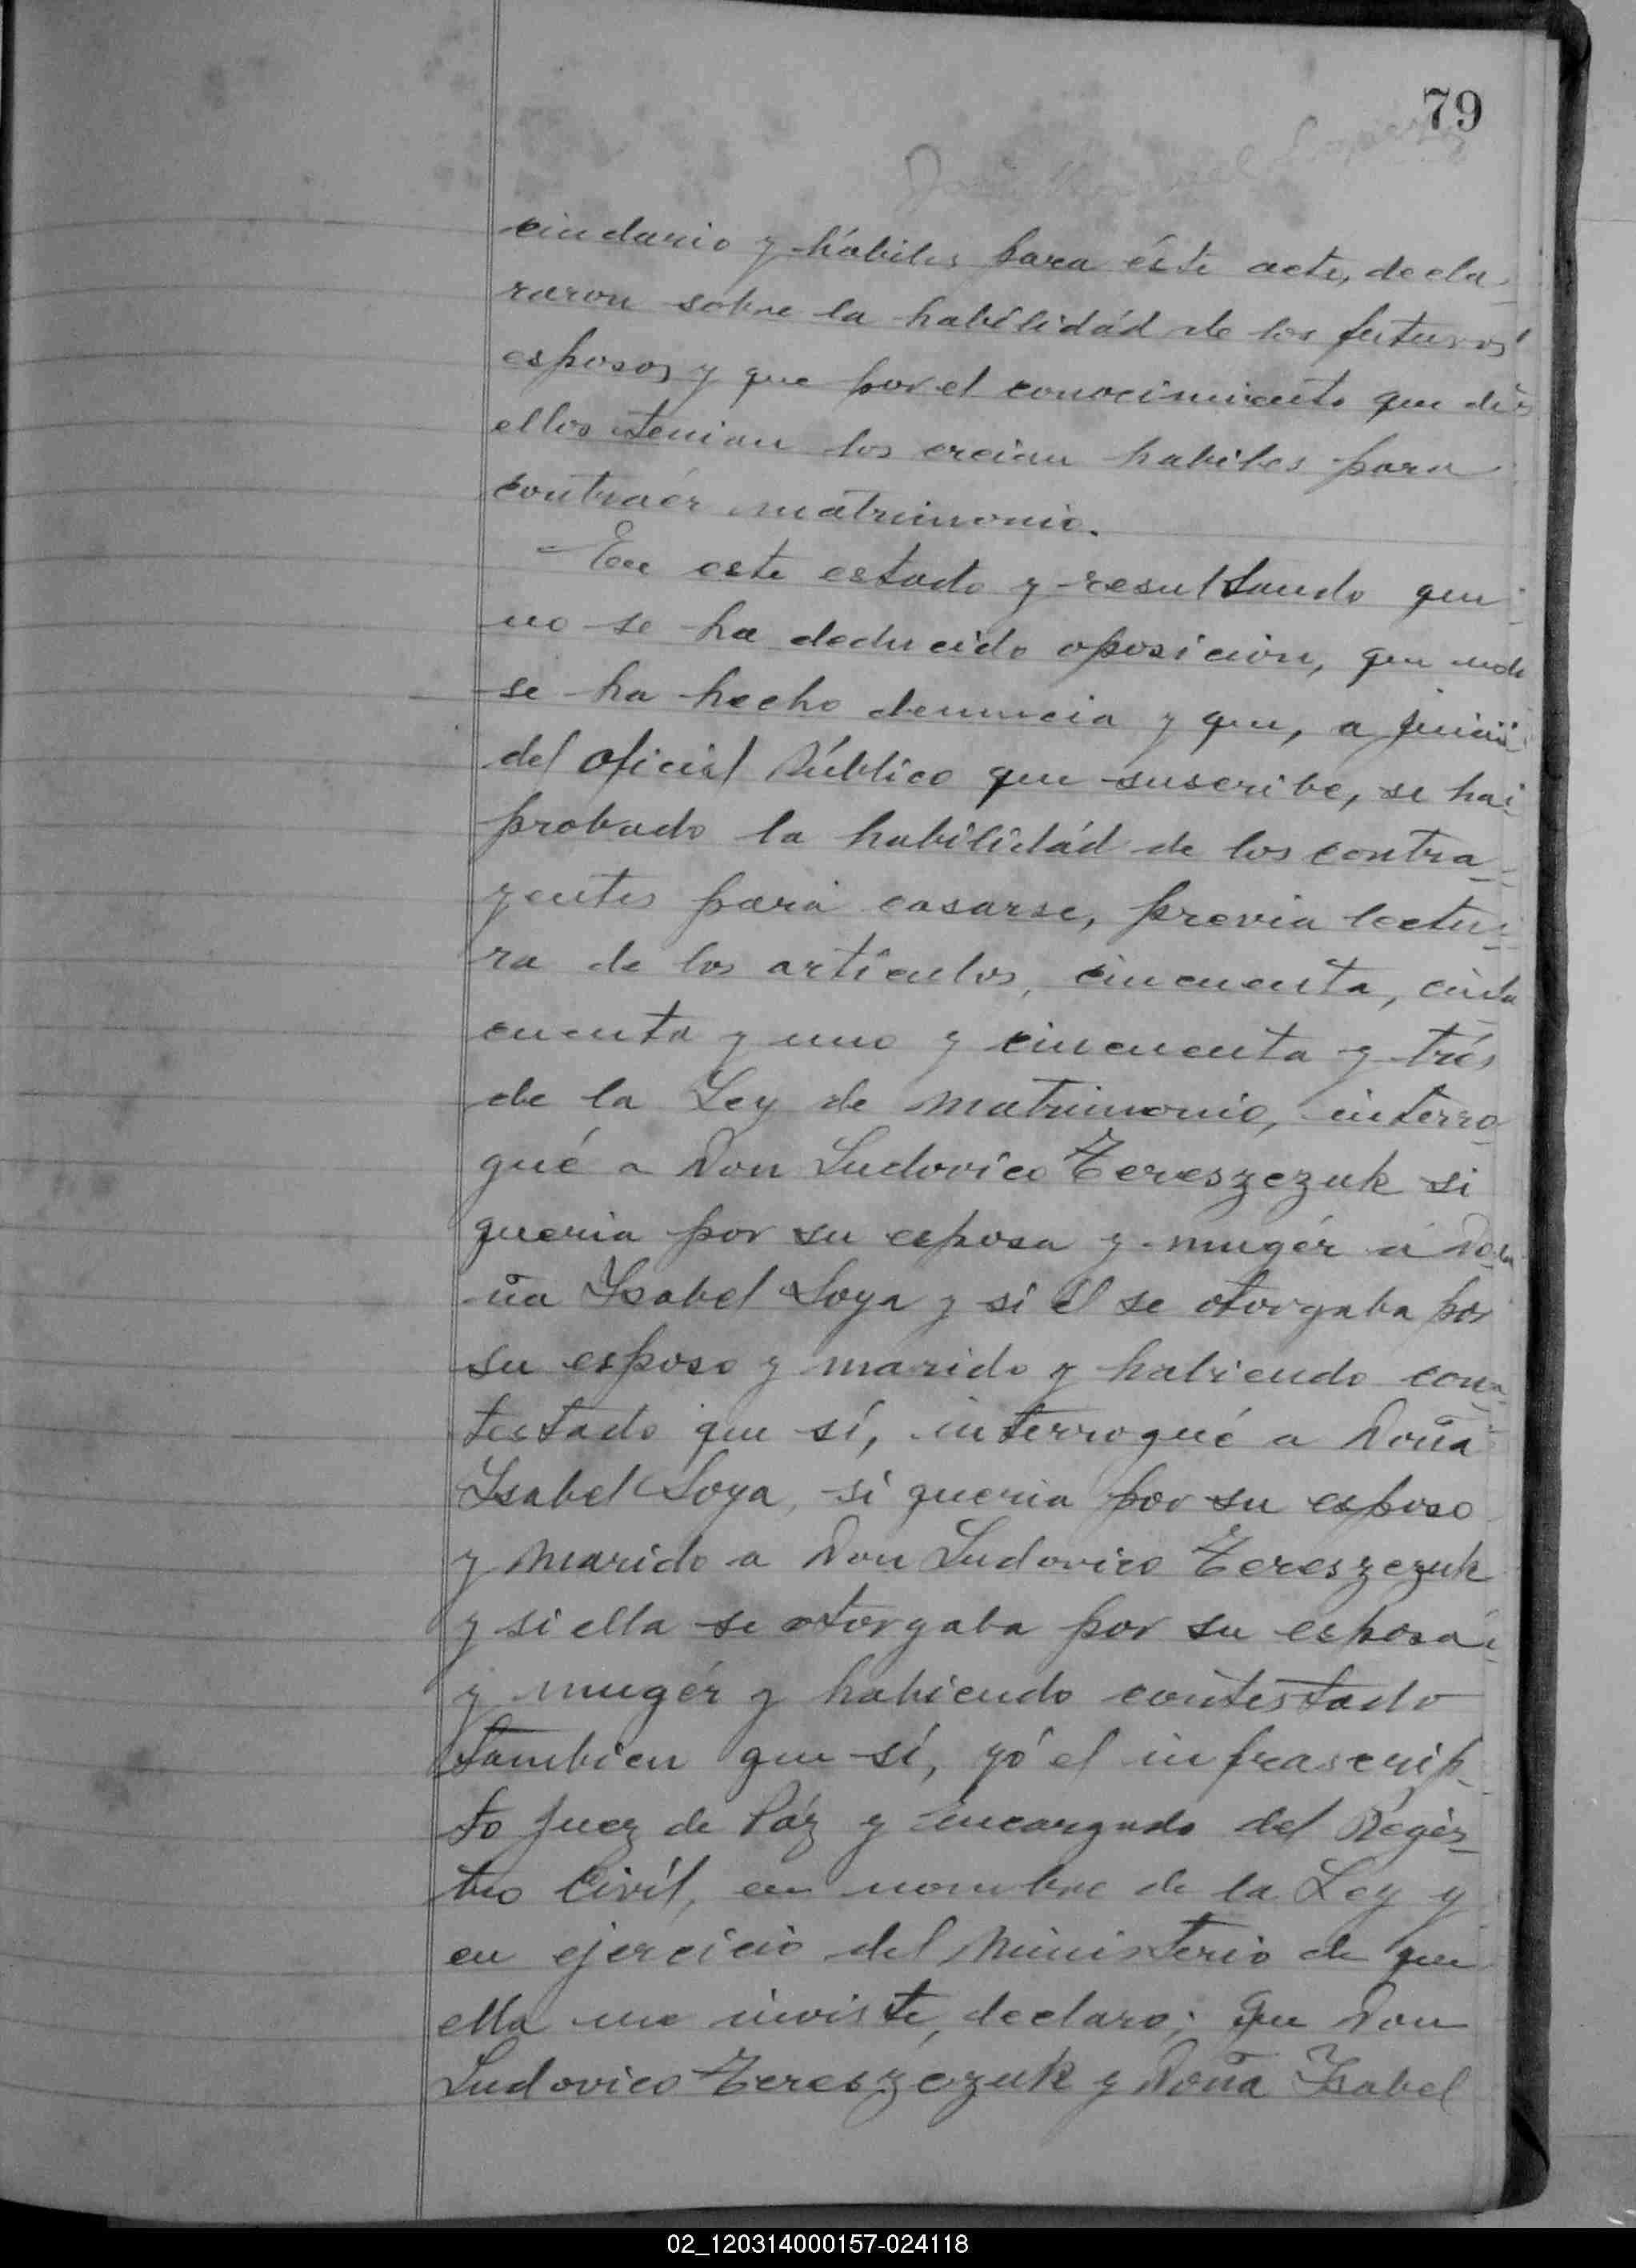 79
cindario y hábiles para éste acto, decla-
raron sobre la habilidád de los futuros
esposos y que por el conocimiento que de
ellos tenian los creian habiles para
contraér matrimonio.
En este estado y resultando que
no se ha deducido oposición, que no
se ha hecho denuncia y que, a juicio
del oficial Público que suscribe, se ha
probado la habilidád de los contra-
yentes para casarse, previa lectu-
ra de los artículos, cincuenta, cin-
cuenta y uno y cincuenta y trés
de la Ley de Matrimonio, interro-
gué a Don Ludovico Tereszczuk si
queria por su esposa y mugér a Do-
ña Ysabel Soya y si él se otorgaba por
su esposo y marido y habiendo con-
testado que sí, interrogué a Doña
Ysabel Soya, si queria por su esposo
y marido a Don Ludovico Tereszczuk
y si ella se otorgaba por su esposa
y mugér y habiendo contestado
tambien que sí, yó el infrascrip-
to Juez de Páz y Encargado del Regis-
tro Civíl, en nombre de la Ley y
en ejercicio del Ministerio de que
ella me inviste, declaro; que Don
Ludovico Tereszczuk y Doña Ysabel
02_120314000157-024118